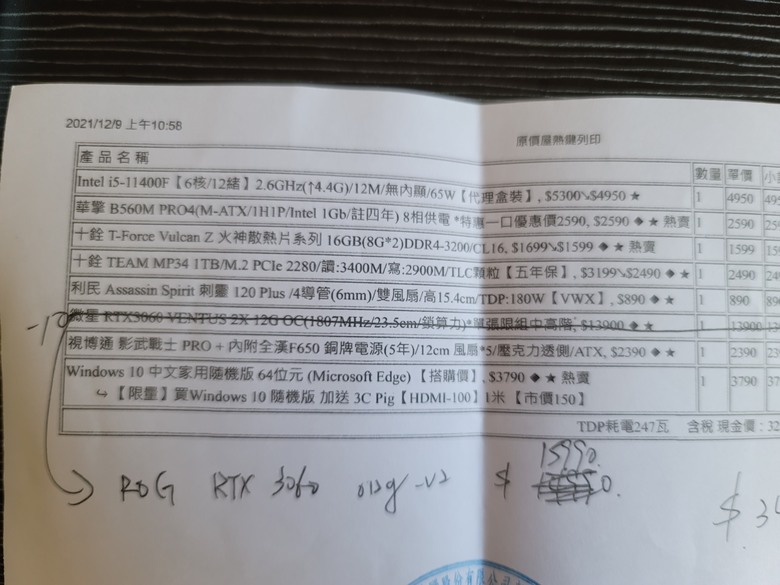 2021/12/9 上午10:58
原價屋熱鍵列印
產品名稱 數量 單價
Intel i5-11400F【6核/12緒】2.6GHz(↑4.4G)/12M/無內顯/65W【代理盒裝】, $5300↘$4950 ★ 1 4950
華擎 B560M PRO4(M-ATX/1H1P/Intel 1Gb/註四年) 8相供電 *特惠一口優惠價2590, $2590 ◆ ★ 熱賣 1 2590
十銓 T-Force Vulcan Z 火神散熱片系列 16GB(8G*2)DDR4-3200/CL16, $1699↘$1599 ◆ ★ 熱賣 1 1599
十銓 TEAM MP34 1TB/M.2 PCIe 2280/讀:3400M/寫:2900M/TLC顆粒【五年保】, $3199↘$2490 ◆ ★ 1 2490
利民 Assassin Spirit 刺靈 120 Plus /4導管(6mm)/雙風扇/高15.4cm/TDP:180W【VWX】, $890 ◆ ★ 1 890
微星 RTX3060 VENTUS 2X 12G OC(1807MHz/23.5cm/鎖算力)*單張限組中高階, $13900 ◆ ★ 1 13900
視博通 影武戰士 PRO + 內附全漢F650 銅牌電源(5年)/12cm 風扇*5/壓克力透側/ATX, $2390 ◆ ★ 1 2390
Windows 10 中文家用隨機版 64位元 (Microsoft Edge) 【搭購價】, $3790 ◆ ★ 熱賣 1 3790
↪【限量】買Windows 10 隨機版 加送 3C Pig【HDMI-100】1米 【市價150】
TDP耗電247瓦 含稅 現金價: 32
15990.
→ ROG RTX 3060 o12g -V2 $
$ 34